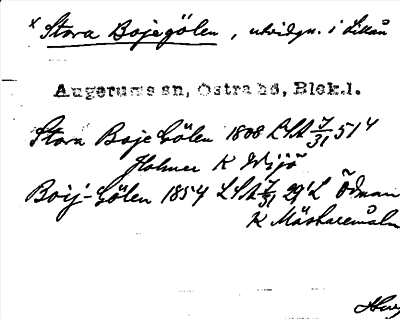 x Stora Bojegölen, utvidgn. i Lillån
Augerums sn, Östra hd, Blek.l.
Stora Boje Gölen 1808 LSA 7/31 51 4
Holmer K Wijö
Boij-Gölen 1854 LSA 7/31 29 L Ödman
K Mästaremåla